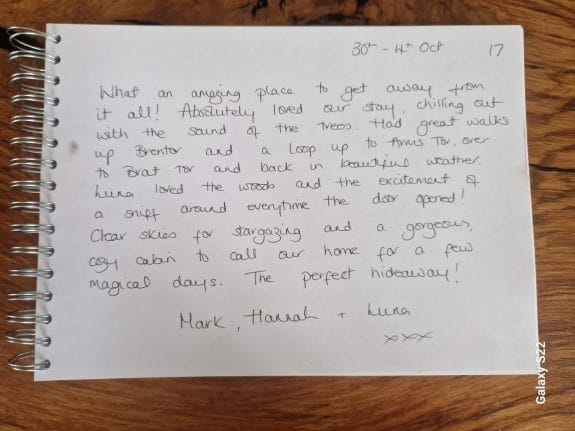 30th - 4th Oct 17
What an amazing place to get away from
it all! Absolutely loved our stay, chilling out
with the sound of the trees. Had great walks
up Brentor and a loop up to Arms Tor, over
to Brat Tor and back in beautiful weather.
Luna loved the woods and the excitement of
a sniff around everytime the door opened!
Clear skies for stargazing and a gorgeous,
cosy cabin to call our home for a few
magical days. The perfect hideaway!
Mark, Hannah + Luna
xxx
Galaxy S22